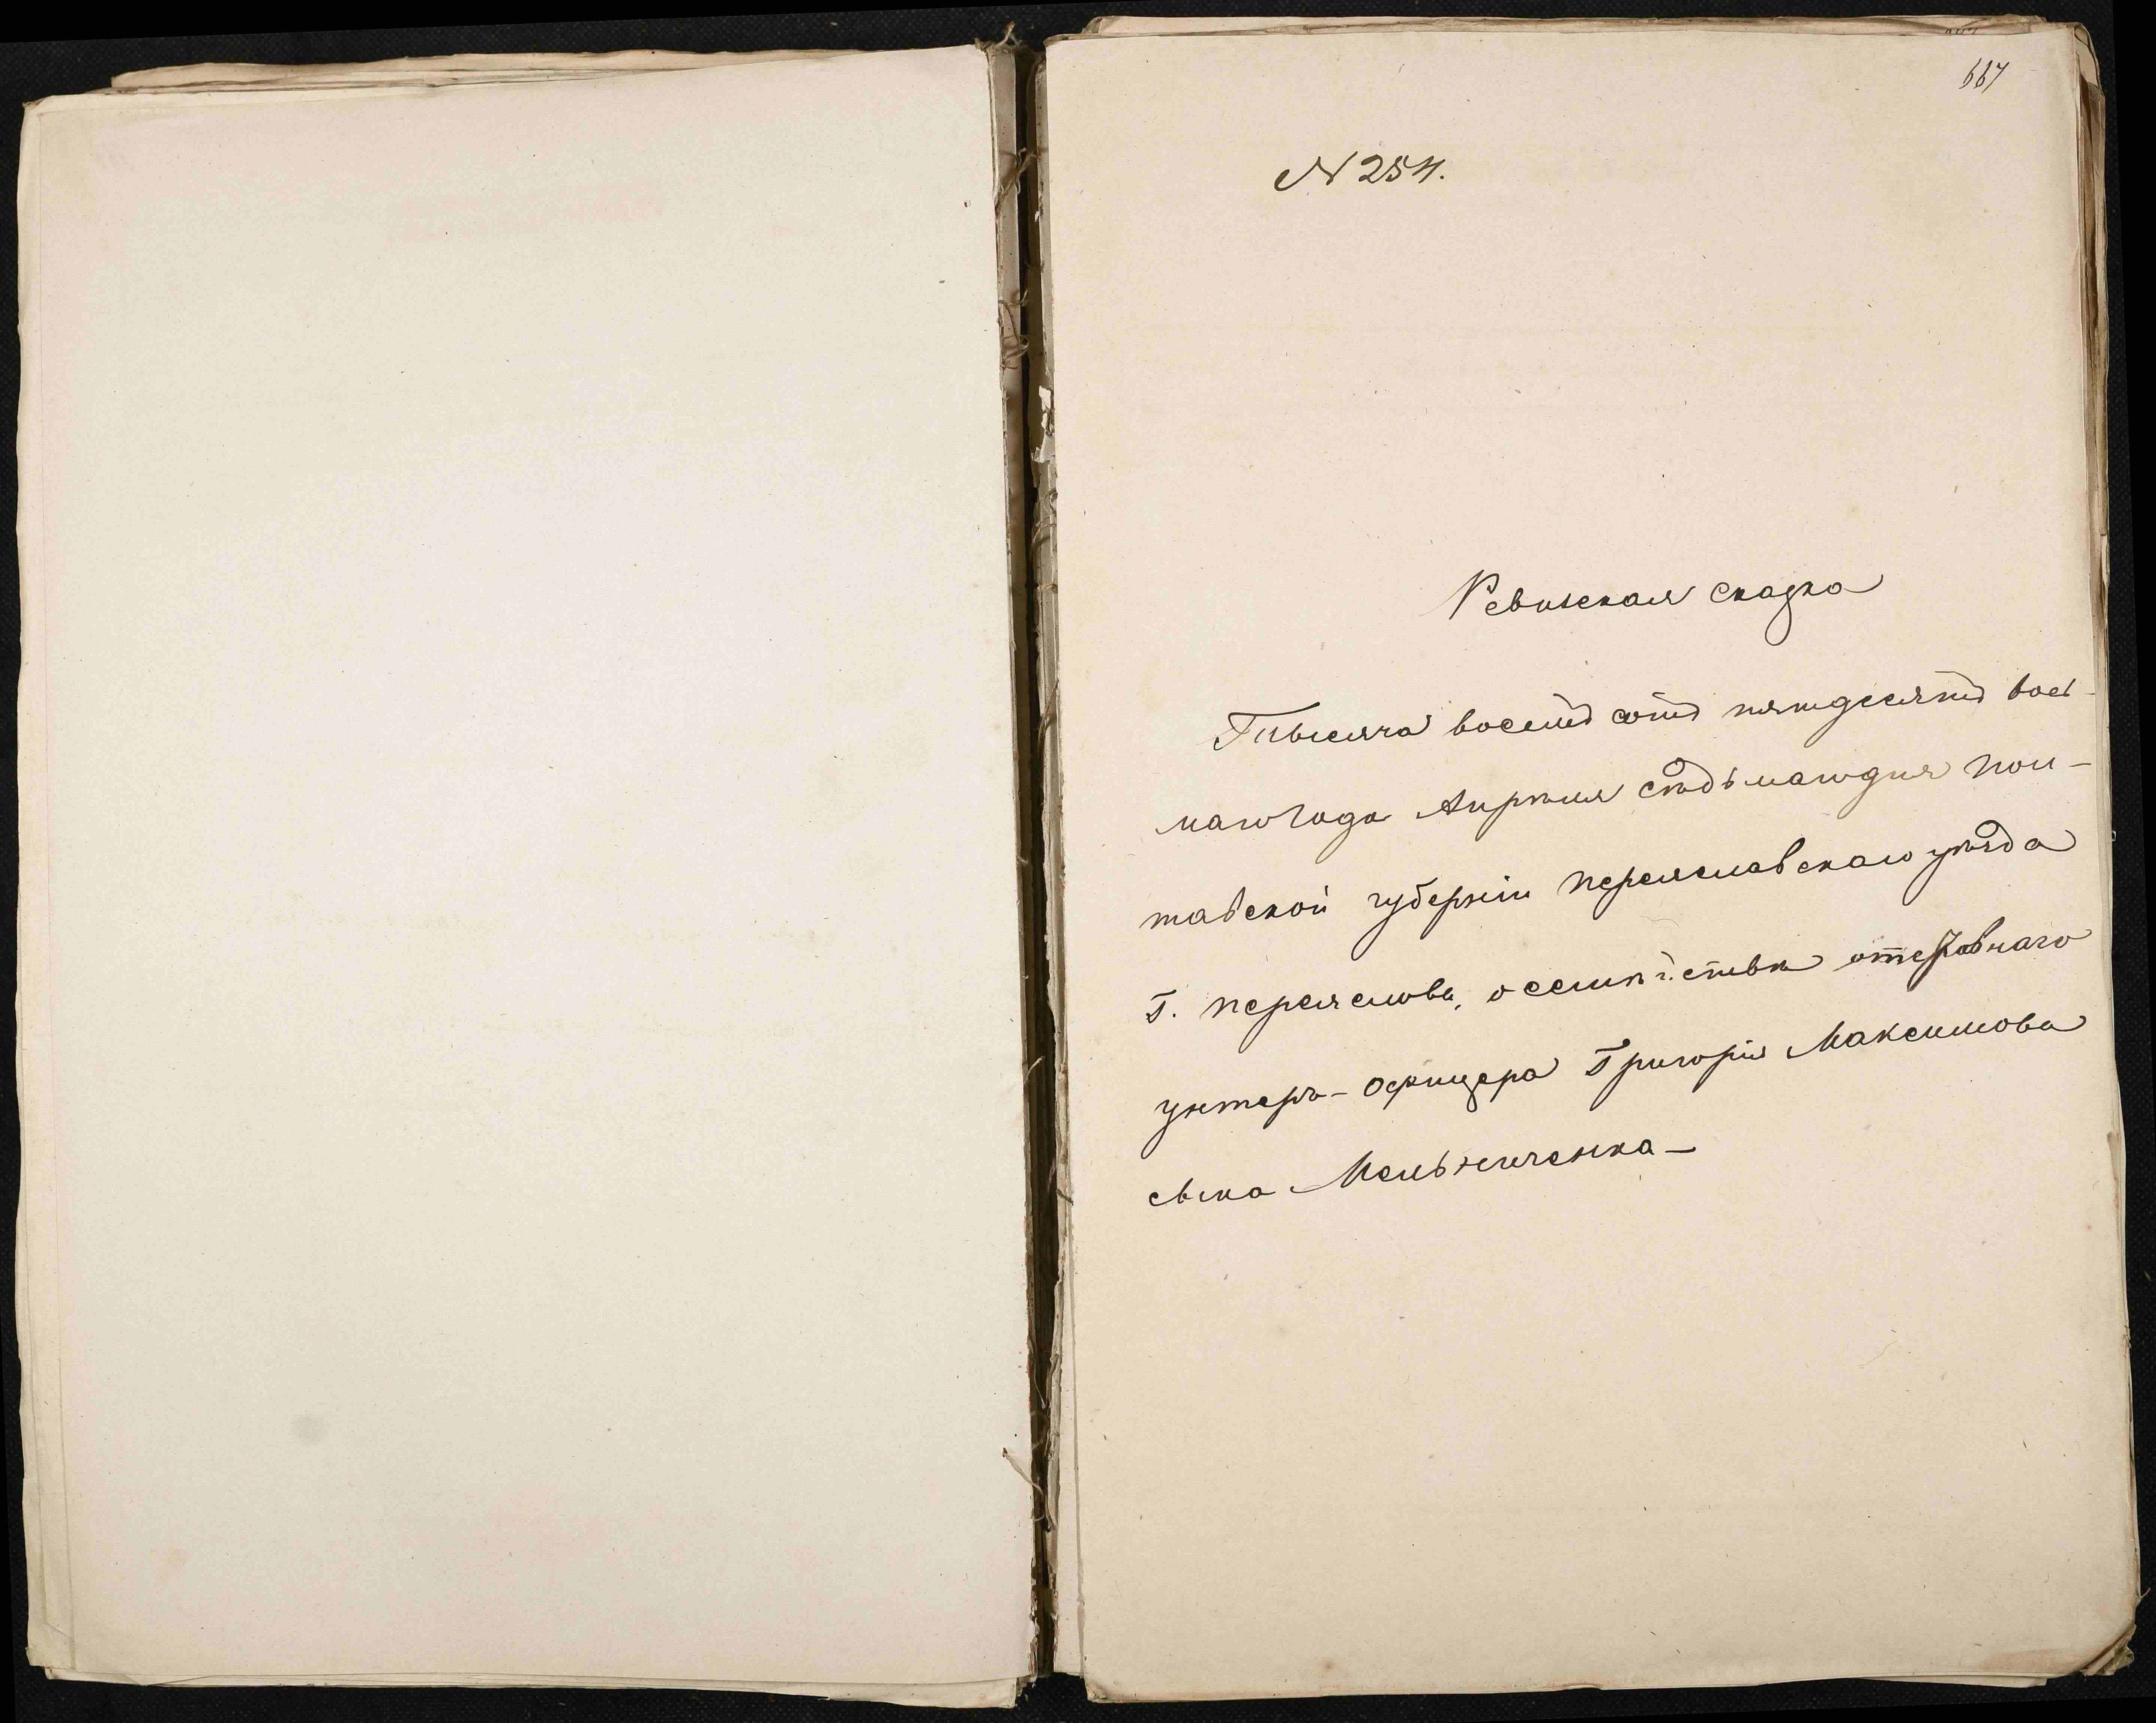 667
N 254.
Ревизская сказка
Тысяча восемь сотъ пятдесятъ вось-
маго года Апрѣля сѣдьмаго дня Пол-
тавской губерніи Переяславскаго уѣзда
Г. Переяслова, о семѣйствѣ отставнаго
унтеръ-офицера Григорія Максимова
сына Мельниченка-